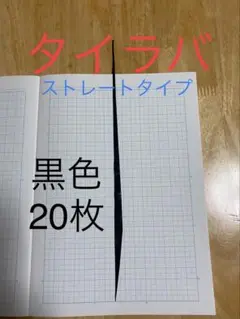 タイラバ
ストレートタイプ
黒色
20枚